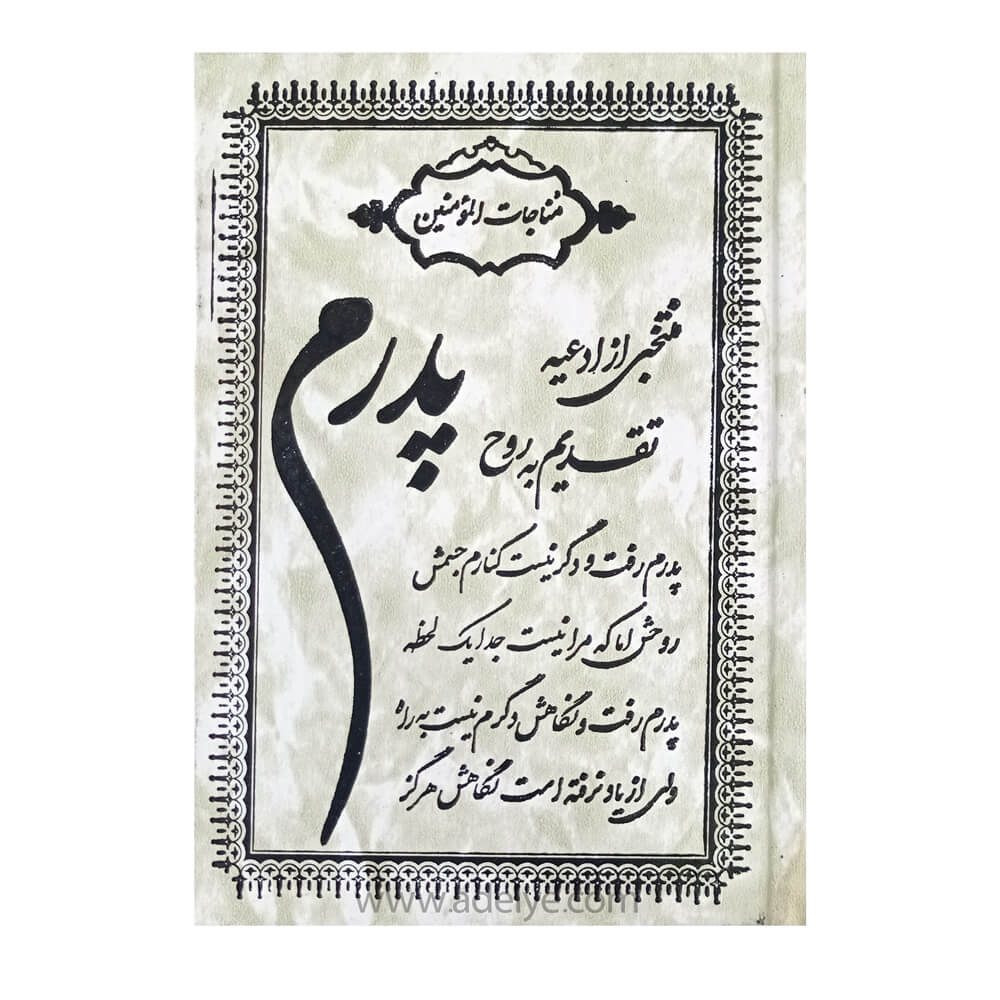 مناجات المؤمنین
منتخبی از ادعیه
تقدیم به روح
پدرم
پدرم رفت و دگر نیست کنارم جسمش
روحش اما که مرا نیست جدا یک لحظه
پدرم رفت و نگاهش دگرم نیست به راه
ولی از یاد نرفته است نگاهش هرگز
www.adelye.com